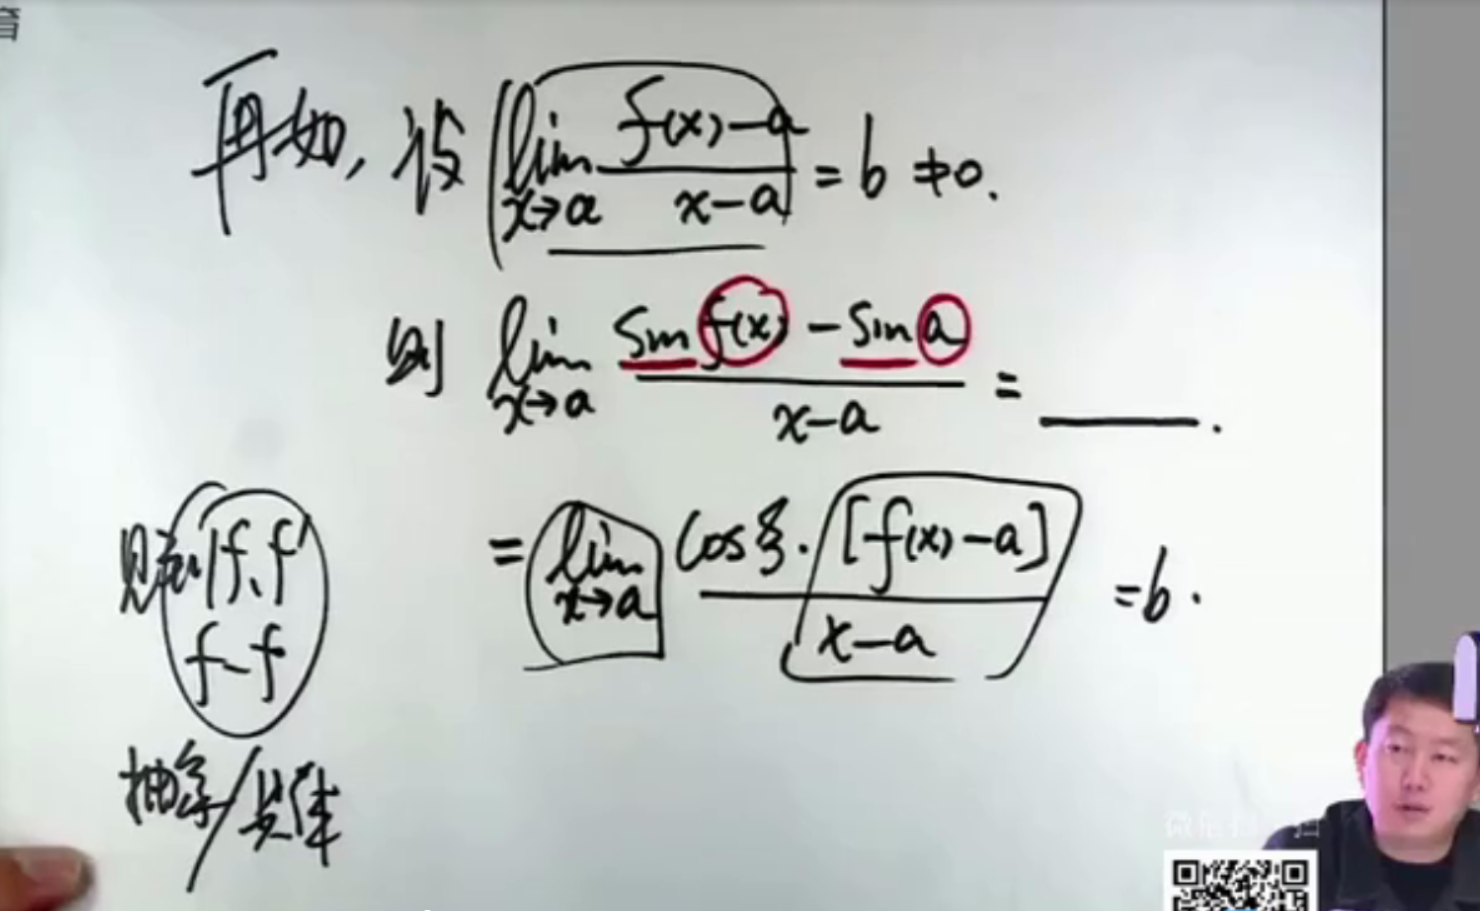 育
再如, 设 lim x→a f(x)-a / x-a = b ≠0.
则 lim x→a sin f(x) - sin a / x-a = ____.
= lim x→a cos ξ · [f(x)-a] / x-a = b.
见到 f、f'
f-f
抽象/具体
微信扫一扫